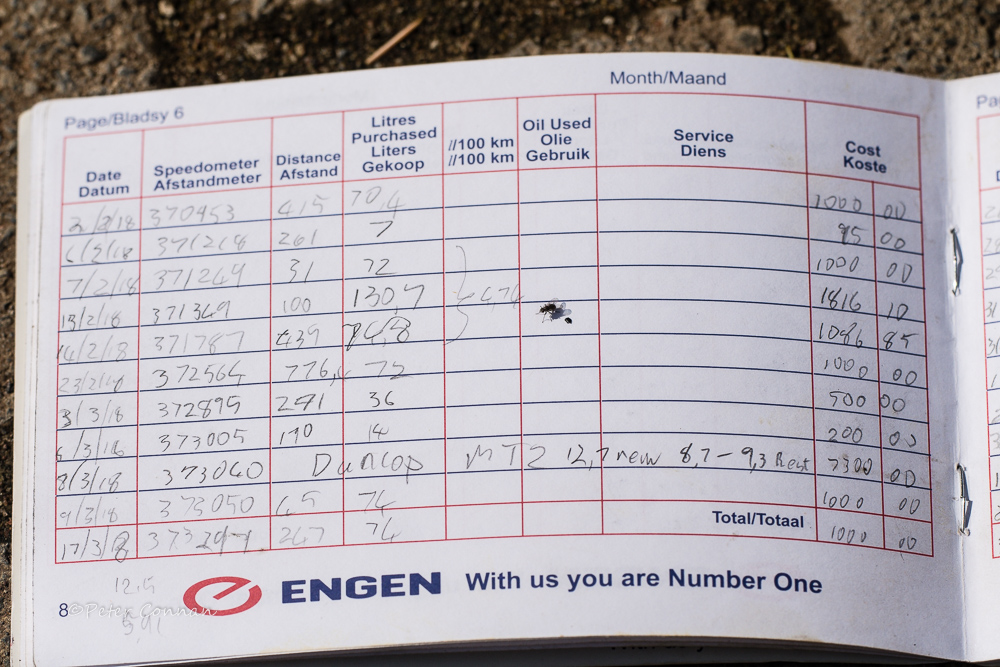 Month/Maand
Page/Bladsy 6
Date Datum Speedometer Afstandmeter Distance Afstand Litres Purchased Liters Gekoop l/100 km l/100 km Oil Used Olie Gebruik Service Diens Cost Koste
2/2/18 370953 415 70,4 1000 00
6/2/18 371218 261 7 95 00
7/2/18 371249 31 72 1000 00
13/2/18 371349 100 130,7 1816 10
14/2/18 371787 439 74,8 1086 85
23/2/18 372564 776, 72 1000 00
3/3/18 372895 36 500 00
6/3/18 373005 14 200 00
8/3/18 373040 Dunlop MT2 12,7 new 8,7 - 9,3 Rest 7300 00
9/3/18 373050 45 74 1000 00
17/3/18 247 74 Total/Totaal 1000 00
12,5
ENGEN With us you are Number One
8 ©Peter Connan